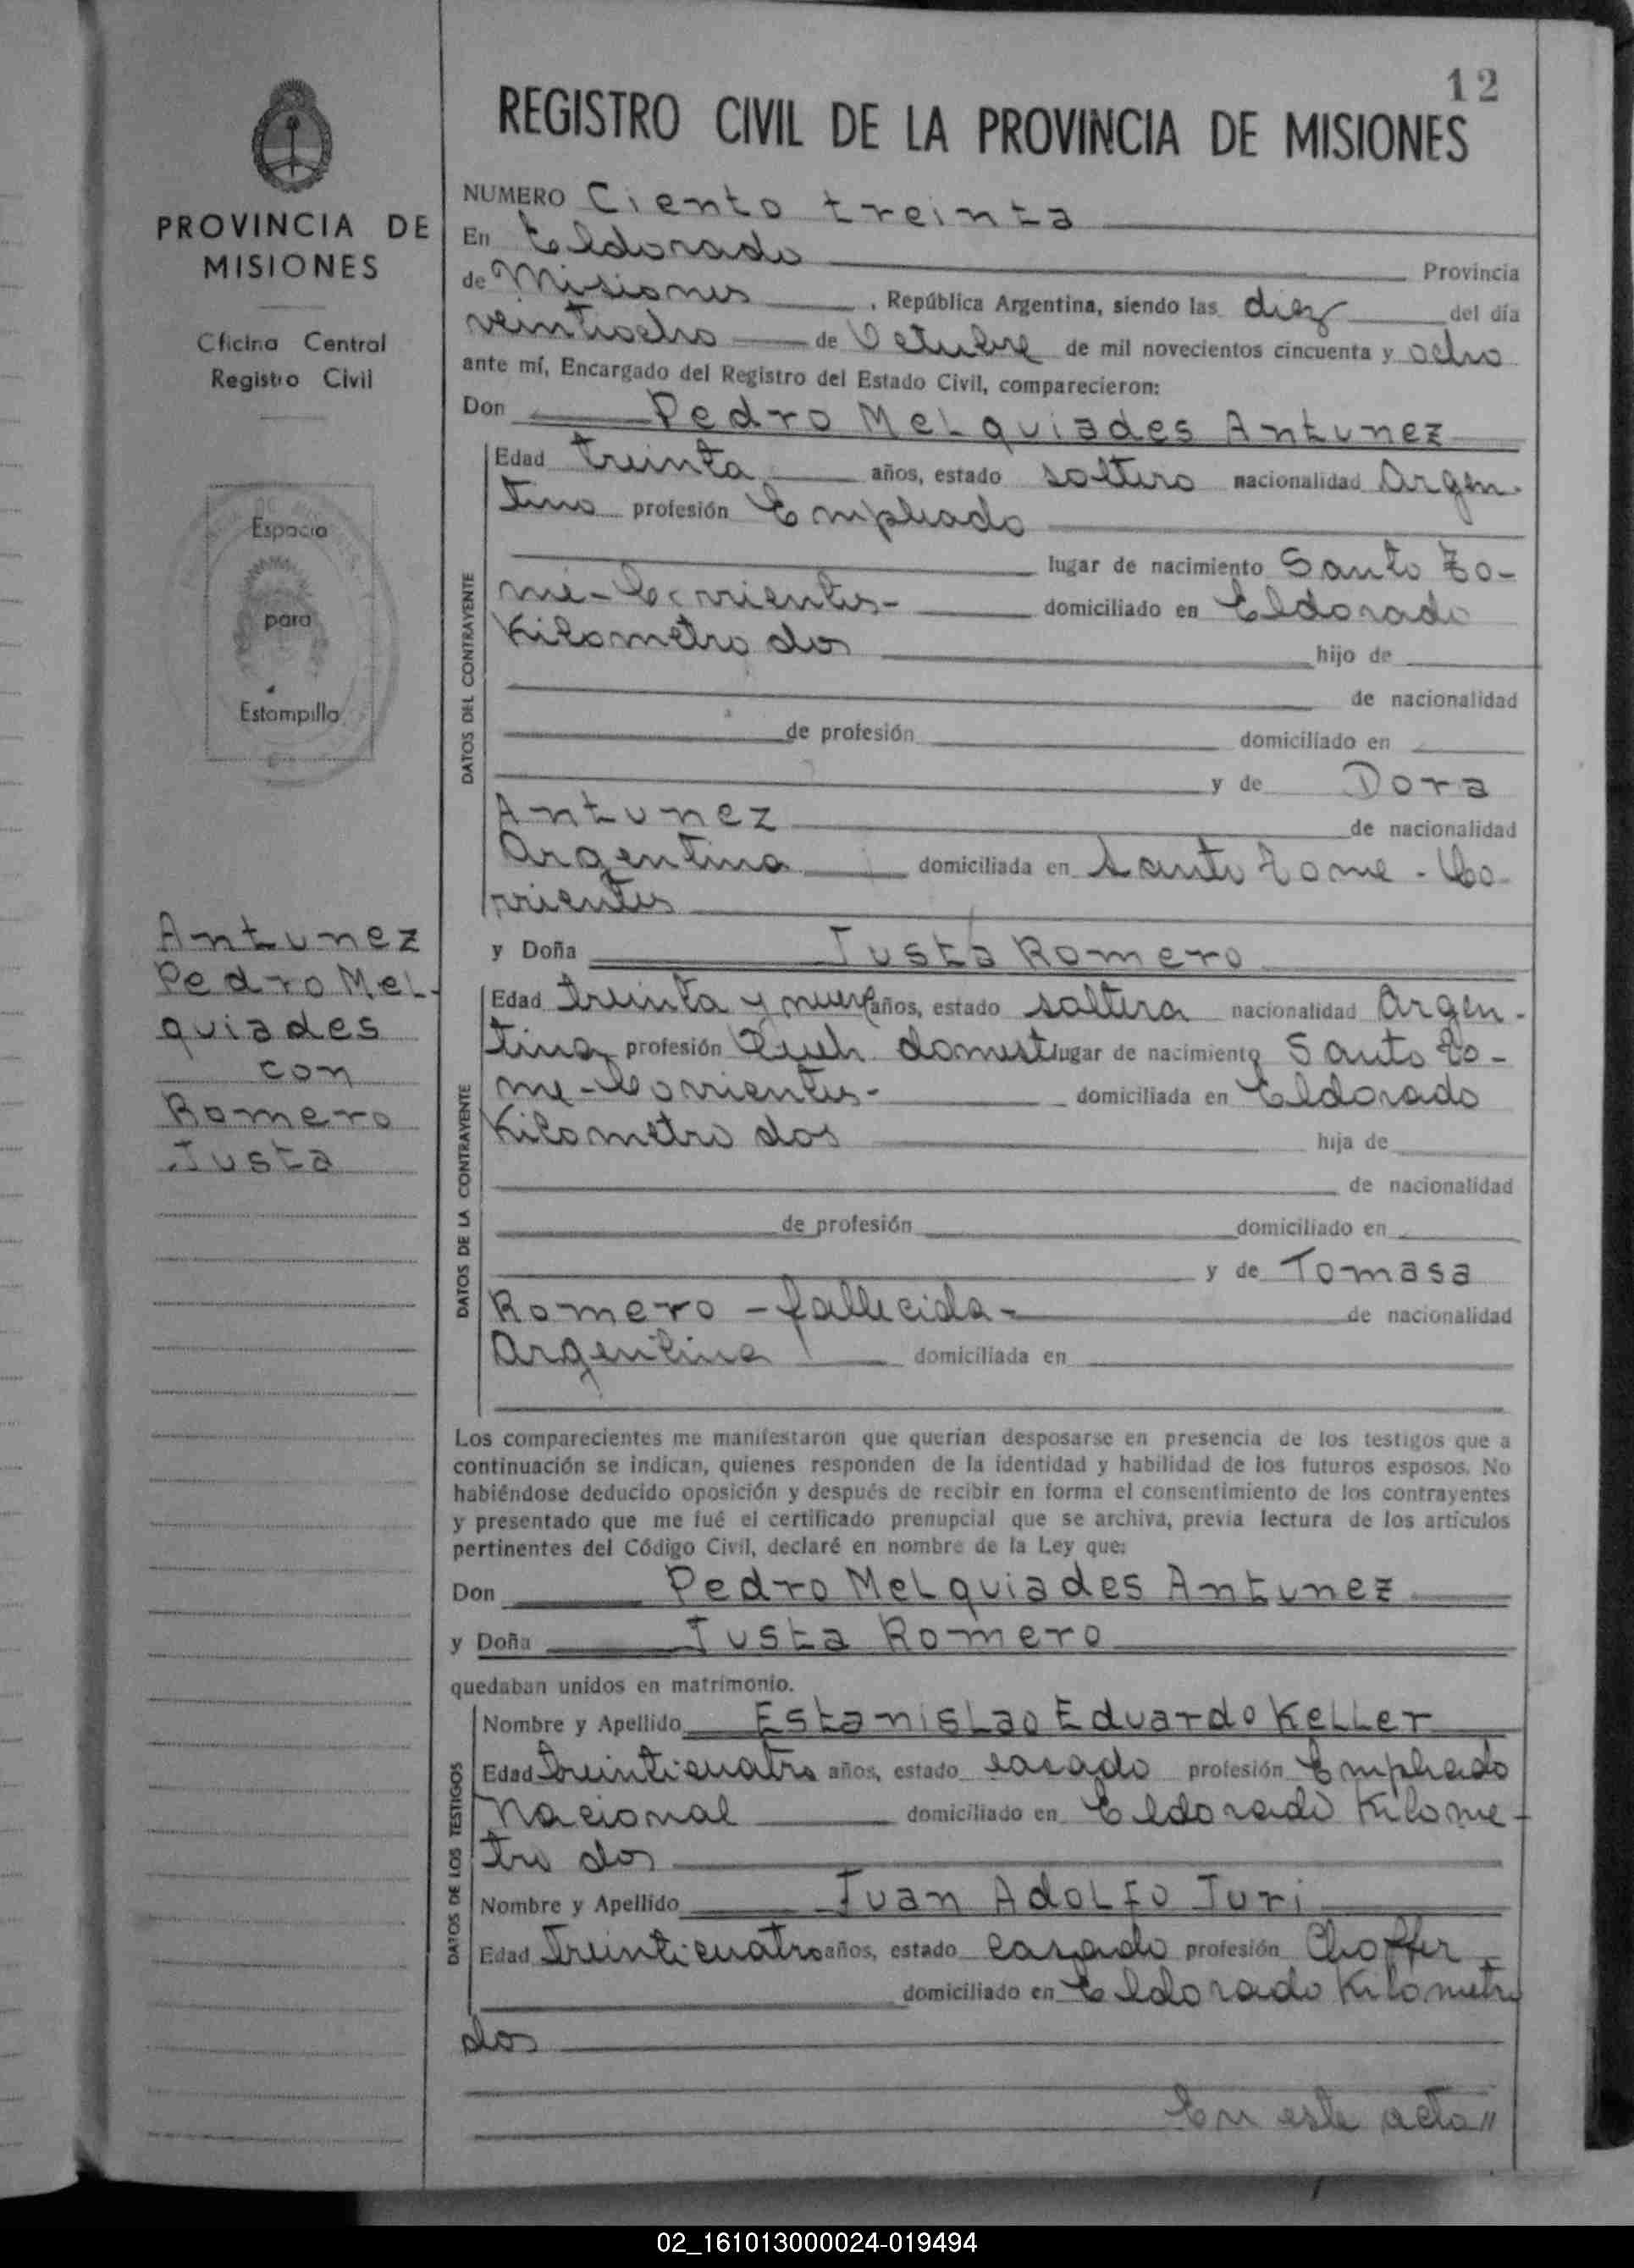 12
REGISTRO CIVIL DE LA PROVINCIA DE MISIONES
PROVINCIA DE
MISIONES
Oficina Central
Registro Civil
Espacio
para
Estampilla
Antunez
Pedro Mel-
quiades
con
Romero
Justa
NUMERO Ciento treinta
En Eldorado Provincia
de Misiones, República Argentina, siendo las diez del día
veintiocho de Octubre de mil novecientos cincuenta y ocho
ante mí, Encargado del Registro del Estado Civil, comparecieron:
Don Pedro Melquiades Antunez
DATOS DEL CONTRAYENTE
Edad treinta años, estado soltero nacionalidad Argen-
tino profesión Empleado
lugar de nacimiento Santo To-
mé-Corrientes- domiciliado en Eldorado
Kilometro dos hijo de
de nacionalidad
de profesión domiciliado en
y de Dora
Antunez de nacionalidad
Argentina domiciliada en Santo Tome - Co-
rrientes
y Doña Justa Romero
DATOS DE LA CONTRAYENTE
Edad treinta y nueve años, estado soltera nacionalidad Argen-
tina profesión Queh. domest lugar de nacimiento Santo To-
me-Corrientes- domiciliada en Eldorado
Kilometro dos hija de
de nacionalidad
de profesión domiciliado en
y de Tomasa
Romero - fallecida- de nacionalidad
Argentina domiciliada en
Los comparecientes me manifestaron que querían desposarse en presencia de los testigos que a
continuación se indican, quienes responden de la identidad y habilidad de los futuros esposos. No
habiéndose deducido oposición y después de recibir en forma el consentimiento de los contrayentes
y presentado que me fué el certificado prenupcial que se archiva, previa lectura de los artículos
pertinentes del Código Civil, declaré en nombre de la Ley que:
Don Pedro Melquiades Antunez
y Doña Justa Romero
quedaban unidos en matrimonio.
DATOS DE LOS TESTIGOS
Nombre y Apellido Estanislao Eduardo Keller
Edad Treinticuatro años, estado casado profesión Empleado
Nacional domiciliado en Eldorado Kilome-
tro dos
Nombre y Apellido Juan Adolfo Juri
Edad Treinticuatro años, estado casado profesión Choffer
domiciliado en Eldorado Kilometro
dos
En este acto //
02_161013000024-019494